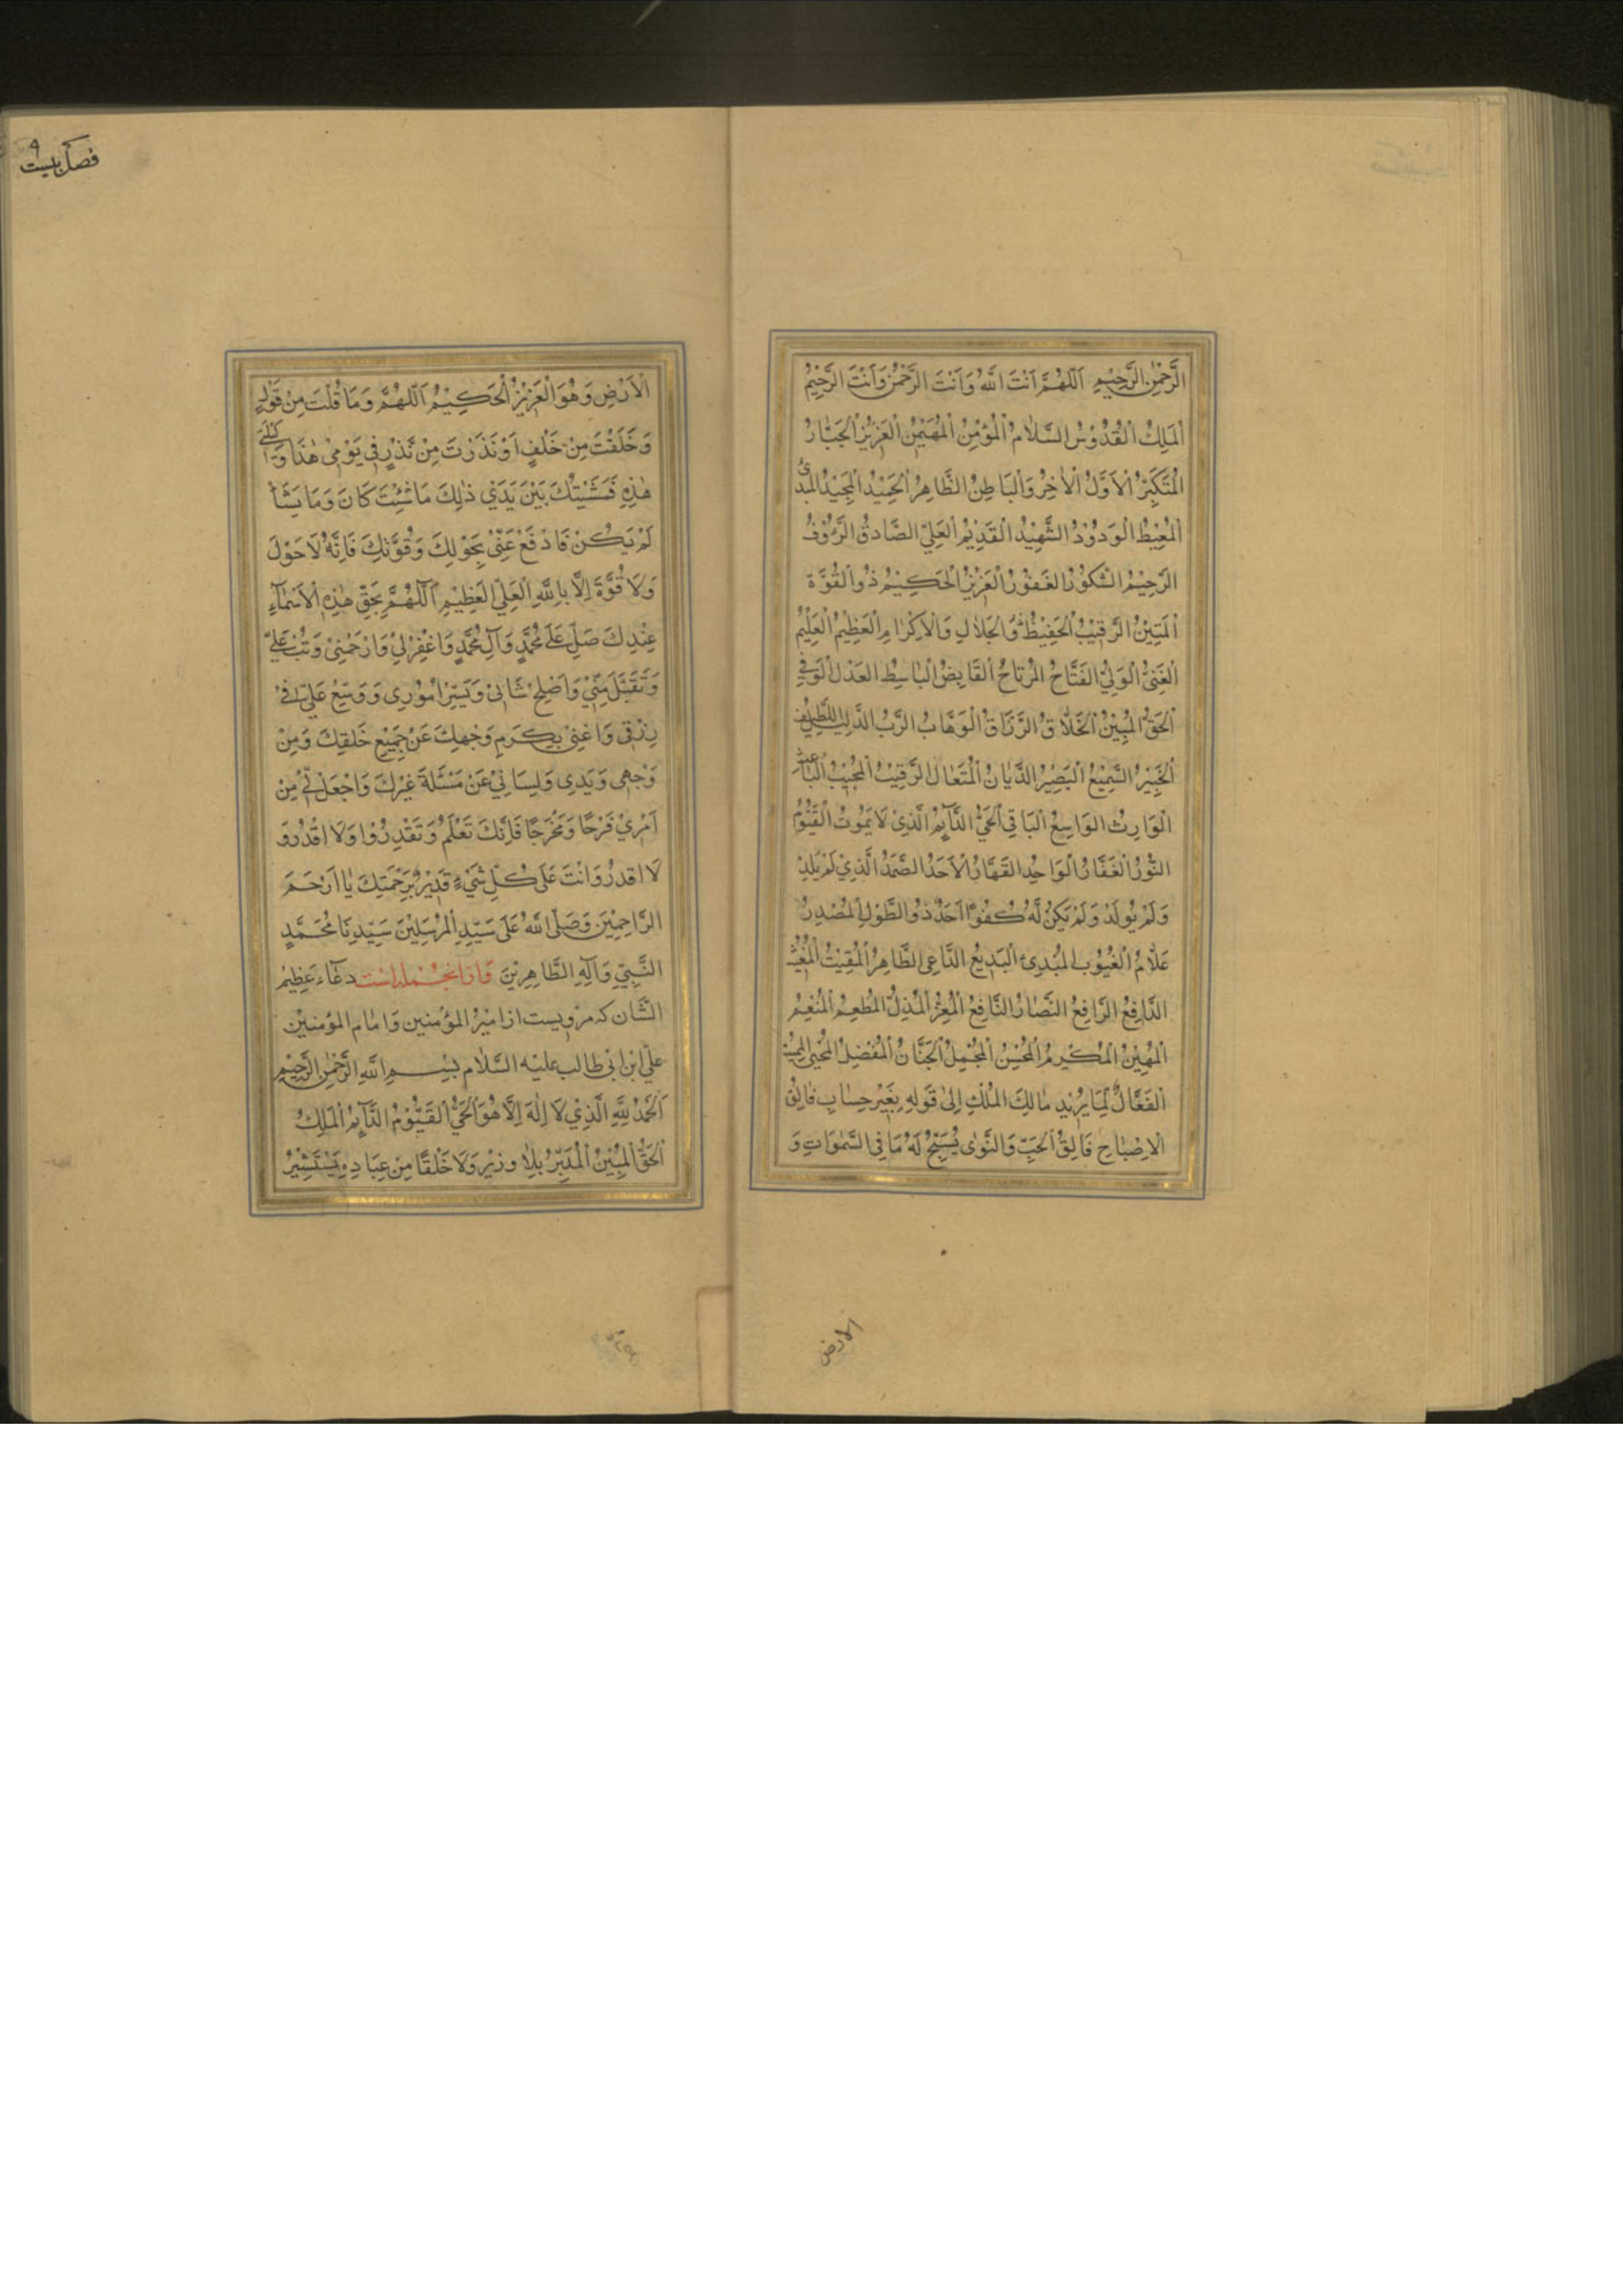 الرَّحْمٰنِ الرَّحِيْمِ اَللّٰهُمَّ اَنْتَ اللّٰهُ وَاَنْتَ الرَّحْمٰنُ وَاَنْتَ الرَّحِيْمُ
اَلْمَلِكُ الْقُدُّوْسُ السَّلَامُ الْمُؤْمِنُ الْمُهَيْمِنُ الْعَزِيْزُ الْجَبَّارُ
الْمُتَكَبِّرُ الْاَوَّلُ الْاٰخِرُ وَالْبَاطِنُ الظَّاهِرُ الْحَمِيْدُ الْمَجِيْدُ الْمُبْدِئُ
الْمُعِيْدُ الْوَدُوْدُ الشَّهِيْدُ الْقَدِيْمُ الْعَلِيُّ الصَّادِقُ الرَّؤُوْفُ
الرَّحِيْمُ الشَّكُوْرُ الْغَفُوْرُ الْعَزِيْزُ الْحَكِيْمُ ذُوالْقُوَّةِ
الْمَتِيْنُ الرَّقِيْبُ الْحَفِيْظُ ذُوالْجَلَالِ وَالْاِكْرَامِ الْعَظِيْمُ الْعَلِيْمُ
الْغَنِيُّ الْوَلِيُّ الْفَتَّاحُ الْمُرْتَاحُ الْقَابِضُ الْبَاسِطُ الْعَدْلُ الْوَفِيُّ
الْحَقُّ الْمُبِيْنُ الْخَلَّاقُ الرَّزَّاقُ الْوَهَّابُ الرَّبُّ اللَّطِيْفُ
الْخَبِيْرُ السَّمِيْعُ الْبَصِيْرُ الدَّيَّانُ الْمُتَعَالُ الرَّقِيْبُ الْمُجِيْبُ الْبَاعِثُ
الْوَارِثُ الْوَاسِعُ الْبَاقِي الْحَيُّ الدَّآئِمُ الَّذِيْ لَا يَمُوْتُ الْقَيُّوْمُ
النُّوْرُ الْغَفَّارُ الْوَاحِدُ الْقَهَّارُ الْاَحَدُ الصَّمَدُ الَّذِيْ لَمْ يَلِدْ
وَلَمْ يُوْلَدْ وَلَمْ يَكُنْ لَّهُ كُفُوًا اَحَدٌ ذُوالطَّوْلِ الْمُصْدِرُ
عَلَّامُ الْغُيُوْبِ الْمُبْدِىءُ الْبَدِيْعُ الدَّاعِي الظَّاهِرُ الْمُقِيْتُ الْمُغِيْثُ
الدَّافِعُ الرَّافِعُ الضَّارُّ النَّافِعُ الْمُعِزُّ الْمُذِلُّ الْمُطْعِمُ الْمُنْعِمُ
الْمُهِيْنُ الْمُكْرِمُ الْمُحْسِنُ الْمُجْمِلُ الْحَنَّانُ الْمُفْضِلُ الْمُحْيِي الْمُمِيْتُ
الْفَعَّالُ لِمَا يُرِيْدُ مَالِكَ الْمُلْكِ اِلٰى قَوْلِهِ بِغَيْرِ حِسَابٍ فَالِقُ
الْاِصْبَاحِ فَالِقُ الْحَبِّ وَالنَّوٰى يُسَبِّحُ لَهُ مَا فِي السَّمٰوَاتِ وَ
الارض
فصل بیست ٩
الْاَرْضِ وَهُوَ الْعَزِيْزُ الْحَكِيْمُ اَللّٰهُمَّ وَمَا قُلْتُ مِنْ قَوْلٍ
وَحَلَفْتُ مِنْ حَلْفٍ اَوْ نَذَرْتُ مِنْ نَذْرٍ فِيْ يَوْمِيْ هٰذَا وَلَيْلَتِيْ
هٰذِهِ فَمَشِيَّتُكَ بَيْنَ يَدَيْ ذٰلِكَ مَا شِئْتَ كَانَ وَمَا يَشَأْ
لَمْ يَكُنْ فَادْفَعْ عَنِّيْ بِحَوْلِكَ وَقُوَّتِكَ فَاِنَّهُ لَا حَوْلَ
وَلَا قُوَّةَ اِلَّا بِاللّٰهِ الْعَلِيِّ الْعَظِيْمِ اَللّٰهُمَّ بِحَقِّ هٰذِهِ الْاَسْمَآءِ
عِنْدَكَ صَلِّ عَلٰى مُحَمَّدٍ وَآلِ مُحَمَّدٍ وَاغْفِرْلِيْ وَارْحَمْنِيْ وَتُبْ عَلَيَّ
وَتَقَبَّلْ مِنِّيْ وَاَصْلِحْ شَانِيْ وَيَسِّرْ اُمُوْرِي وَوَسِّعْ عَلَيَّ فِيْ
رِزْقِي وَاغْنِنِيْ بِكَرَمِ وَجْهِكَ عَنْ جَمِيْعِ خَلْقِكَ وَمِنْ
وَجْهِي وَيَدِي وَلِسَانِيْ عَنْ مَسْئَلَةِ غَيْرِكَ وَاجْعَلْ لِيْ مِنْ
اَمْرِيْ فَرَجًا وَمَخْرَجًا فَاِنَّكَ تَعْلَمُ وَتَقْدِرُ وَلَا اَقْدُرُ وَ
لَا اَقْدُرُ وَاَنْتَ عَلٰى كُلِّ شَيْءٍ قَدِيْرٌ بِرَحْمَتِكَ يَا اَرْحَمَ
الرَّاحِمِيْنَ وَصَلَّى اللّٰهُ عَلٰى سَيِّدِ الْمُرْسَلِيْنَ سَيِّدِنَا مُحَمَّدٍ
النَّبِيِّ وَآلِهِ الطَّاهِرِيْنَ وَازانجُمله است دعآء عَظِيْمُ
الشَّان كه مرويست از امِيْرُ المؤمنين وَامام المؤمنين
عليّ ابن ابي طالب عليه السّلام بِسْمِ اللّٰهِ الرَّحْمٰنِ الرَّحِيْمِ
اَلْحَمْدُ لِلّٰهِ الَّذِيْ لَا اِلٰهَ اِلَّا هُوَ الْحَيُّ الْقَيُّوْمُ الدَّآئِمُ الْمَلِكُ
الْحَقُّ الْمُبِيْنُ الْمُدَبِّرُ بِلَا وَزِيْرٍ وَلَا خَلْقًا مِنْ عِبَادِهِ يَسْتَشِيْرُ